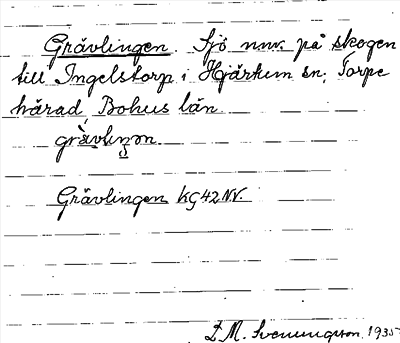 Grävlingen. Sjö nnv. på skogen
till Ingelstorp i Hjärtum sn, Torpe
härad, Bohus län.
grävliŋən.
Grävlingen KG42NV.
D. M. Svenungsson, 1935